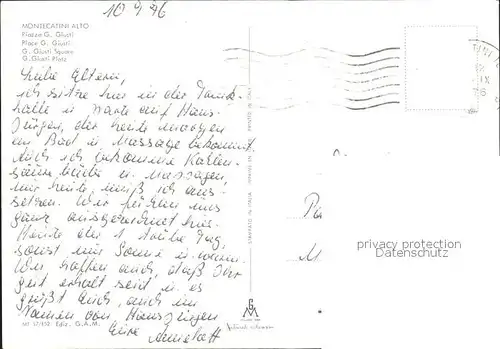 10 9 76
MONTECATINI ALTO
Piazza G. Giusti
Place G. Giusti
G. Giusti Square
G. Giusti Platz
Liebe Eltern,
ich sitze hier in der Trink-
halle u. warte auf Hans-
Jürgen, der heute morgen
ein Bad u. Massage bekommt.
Auch ich bekomme Kohlen-
säurebäder u. Massagen
nur heute muß ich aus-
setzen. Wir fühlen uns
ganz ausgezeichnet hier.
Heute der 1. trübe Tag,
sonst nur Sonne u. warm.
Wir hoffen auch, daß Ihr
gut erhalt seid u. es
grüßt Euch, auch im
Namen von Hansjürgen
Eure
privacy protection
Datenschutz
Ediz. G.A.M.